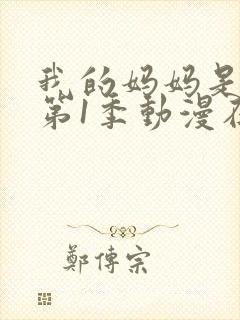 我的妈妈是
第1季動漫在
鄭傳宗